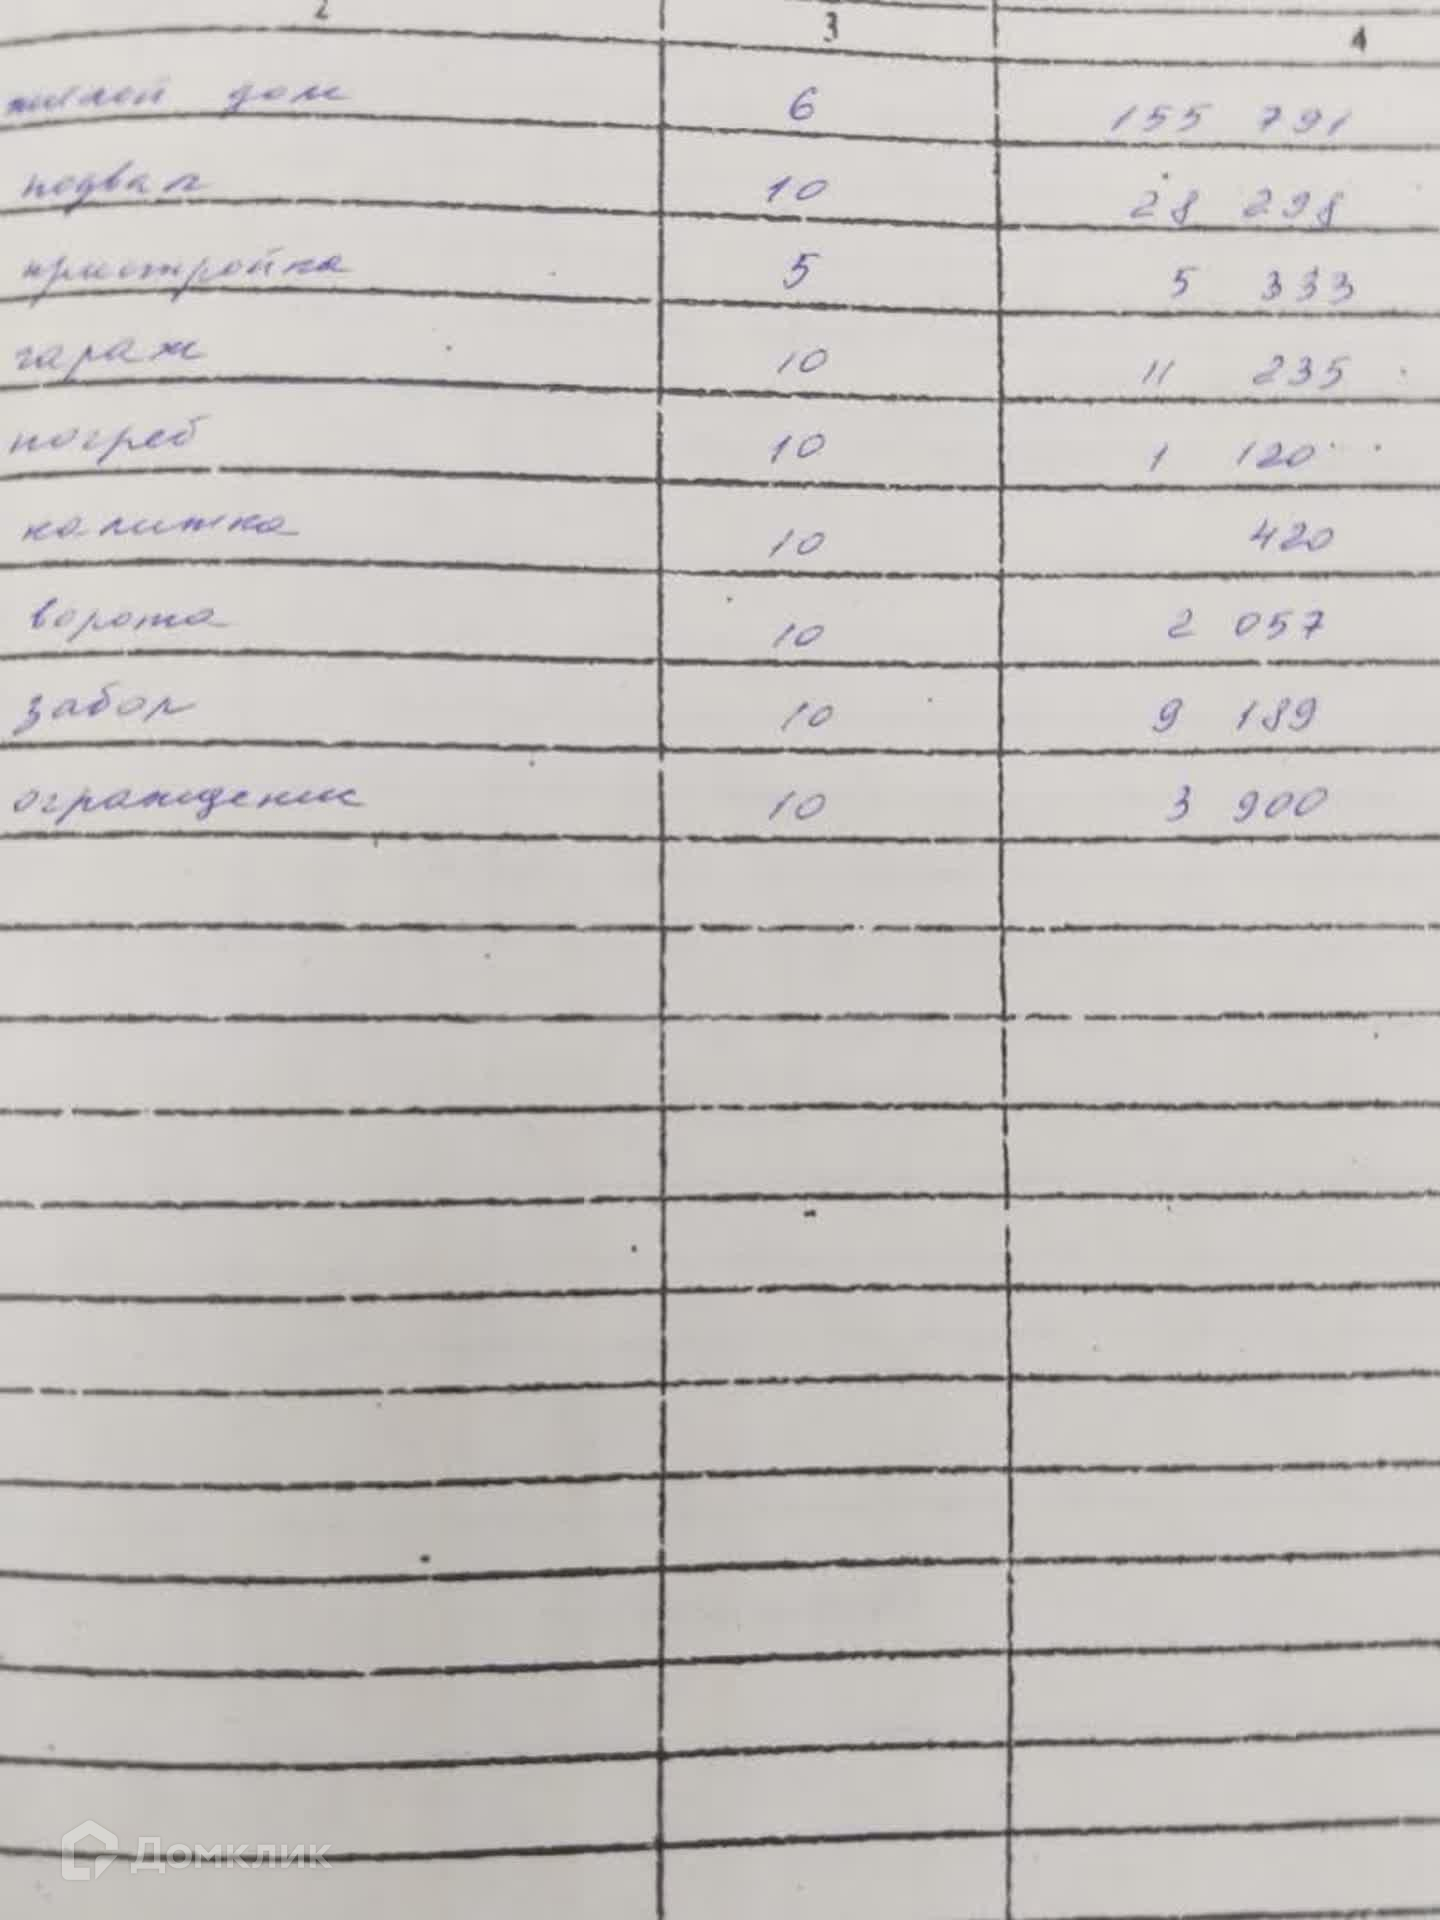 2 3 4
жилой дом 6 155 791
подвал 10 28 298
пристройка 5 5 333
гараж 10 11 235
погреб 10 1 120
калитка 10 420
ворота 10 2 057
забор 10 9 189
ограждение 10 3 900
Домклик